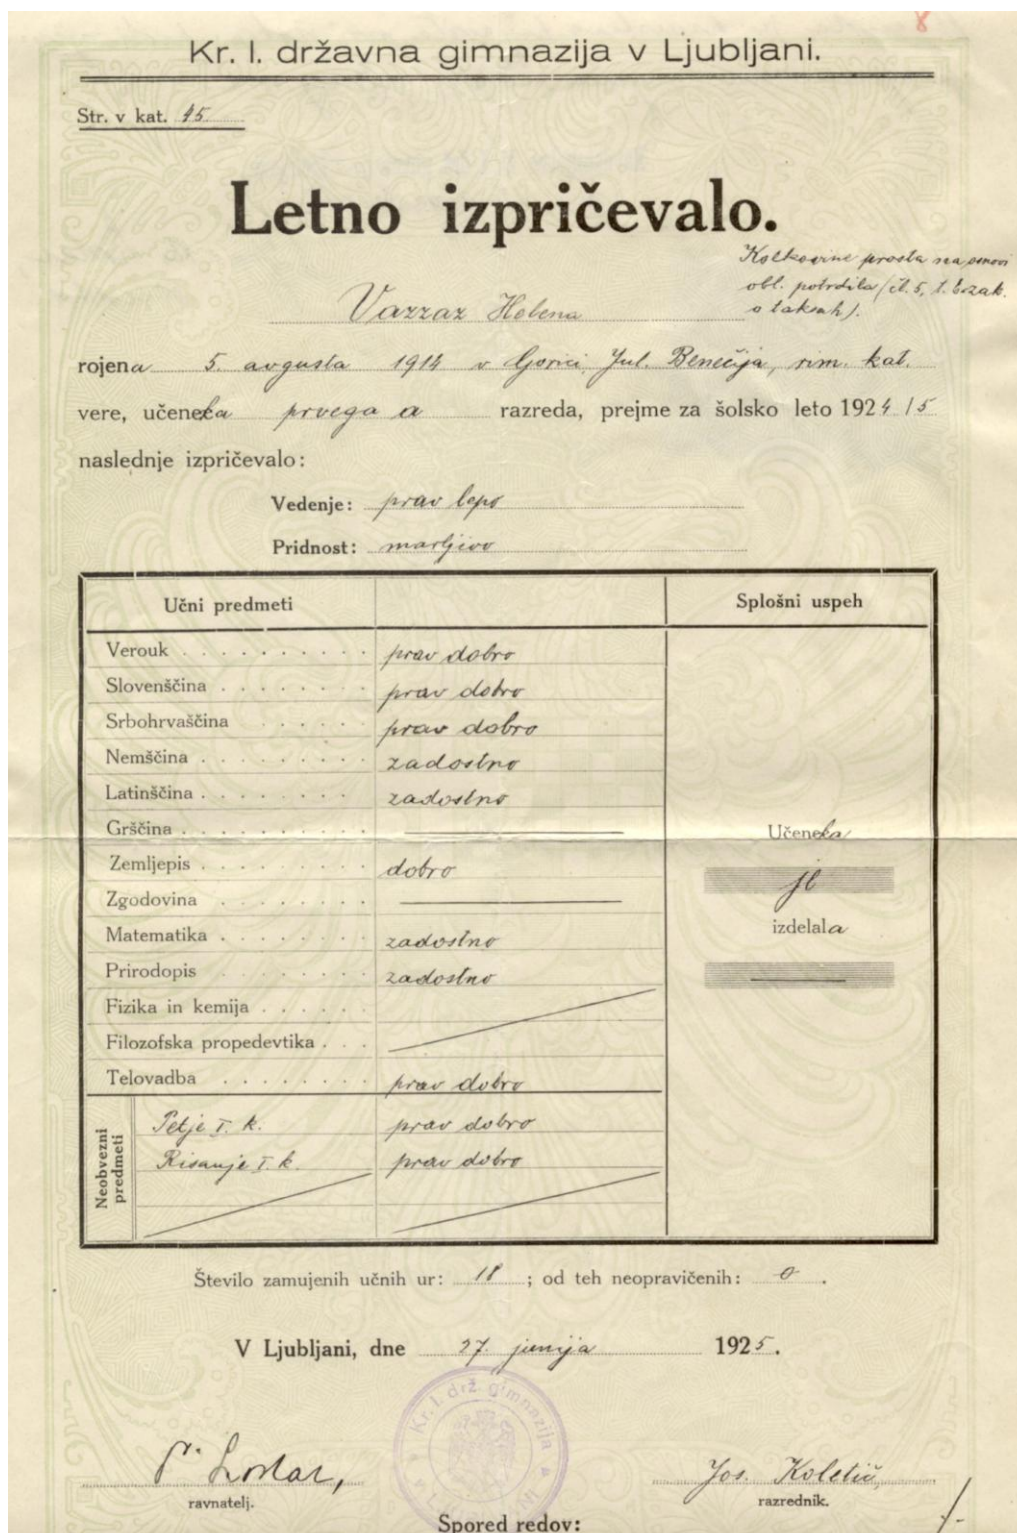 8
Kr. I. državna gimnazija v Ljubljani.
Str. v kat. 45
Letno izpričevalo.
Kolkovine prosta na osnovi
obl. potrdila (čl. 5, t. 6 zak.
o taksah).
Vazzaz Helena
rojena 5. avgusta 1914 v Gorici, Jul. Benečija, rim. kat.
vere, učenka prvega a razreda, prejme za šolsko leto 1924/5
naslednje izpričevalo:
Vedenje: prav lepo
Pridnost: marljivo
Učni predmeti Splošni uspeh
Verouk prav dobro
Slovenščina prav dobro
Srbohrvaščina prav dobro
Nemščina zadostno
Latinščina zadostno
Grščina
Učenka
Zemljepis dobro
je
Zgodovina
izdelala
Matematika zadostno
Prirodopis zadostno
Fizika in kemija
Filozofska propedevtika
Telovadba prav dobro
Neobvezni predmeti
Petje I. k. prav dobro
Risanje I. k. prav dobro
Število zamujenih učnih ur: 18 ; od teh neopravičenih: 0.
V Ljubljani, dne 27. junija 1925.
Kr. I. drž. gimnazija
Jos. Koletič,
ravnatelj. razrednik.
Spored redov: